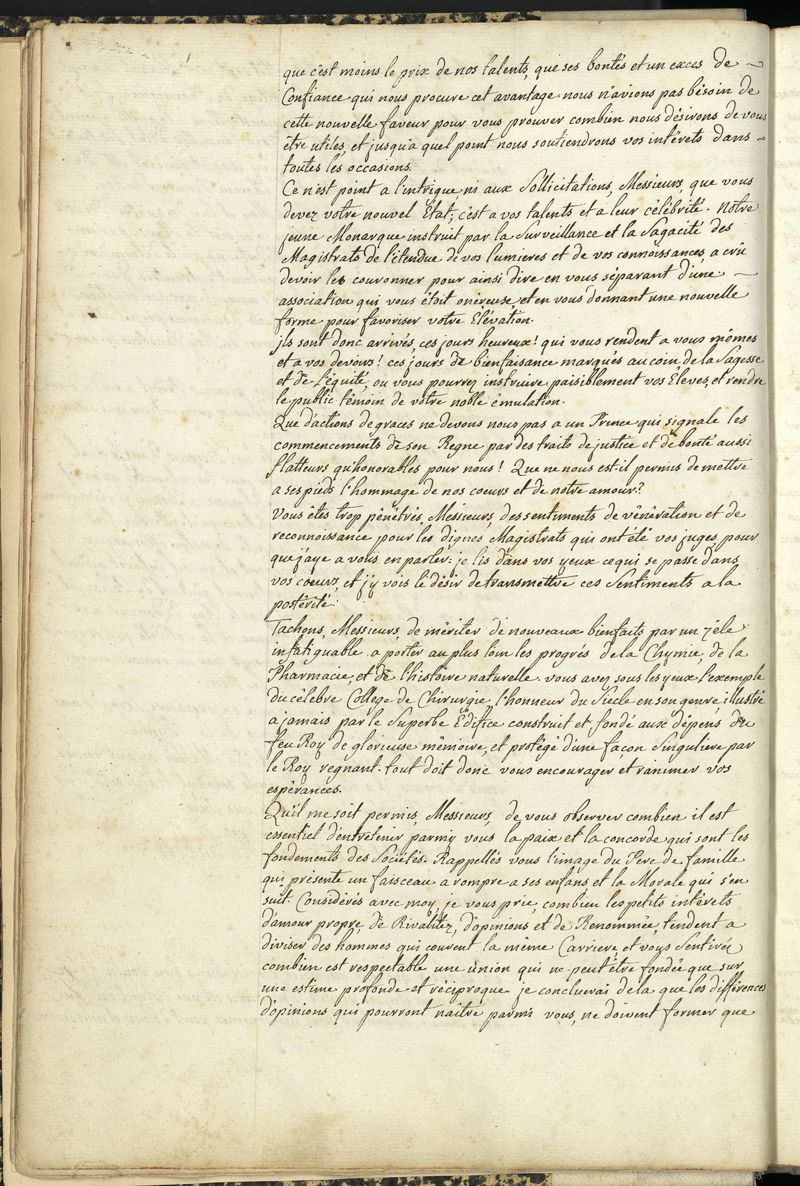 que c'est moins le prix de nos talents, que ses bontés et un exces de
Confiance qui nous procure cet avantage nous n'avions pas bésoin de
cette nouvelle faveur pour vous prouver combien nous désirons de vous
être utiles, et jusqu'a quel point nous soutiendrons vos intérets dans
toutes les occasions.
Ce n'est point a l'intrigue ni aux Sollicitations, Messieurs, que vous
devez votre nouvel Etat; c'est a vos talents et a leur célébrité. Notre
jeune Monarque instruit par la Surveillance et la Sagacité des
Magistrats de l'étendue de vos lumieres et de vos connoissances, a crû
devoir les couronner pour ainsi dire en vous séparant d'une
association qui vous étoit onéreuse, et en vous donnant une nouvelle
forme pour favoriser votre Elévation.
jls sont donc arrivés, ces jours heureux! qui vous rendent a vous mêmes
et a vos devoirs! ces jours de bienfaisance marqués au coin de la Sagesse
et de l'équité, ou vous pourrez instruire paisiblement vos Eleves, et rendre
le public témoin de vôtre noble émulation.
Que d'actions de graces ne devons nous pas a un Prince qui signale les
commencements de son Regne par des traits de justice et de bonté aussi
flatteurs qu'honorables pour nous! Que ne nous est-il permis de mettre
a ses pieds l'hommage de nos coeurs et de notre amour?
Vous êtes trop pénétrés, Messieurs, des sentiments de vénération et de
reconnoissance pour les dignes Magistrats qui ont été vos juges pour
que j'aye a vous en parler: je lis dans vos yeux ce qui se passe dans
vos coeurs, et j'y vois le désir de transmettre ces Sentiments a la
postérité.
Tachons, Messieurs, de mériter de nouveaux bienfaits par un zéle
infatiguable a porter au plus loin les progrés de la Chymie, de la
Pharmacie, et de l'histoire naturelle. vous avez sous les yeux l'exemple
du célebre College de Chirurgie, l'honneur du Siecle en son genre, illustré
a jamais par le Superbe Edifice construit et fondé aux dépens du
feu Roy de glorieuse mémoire, et protégé d'une façon Singuliere par
le Roy regnant. tout doit donc vous encourager et ranimer vos
espérances.
Qu'il me soit permis, Messieurs, de vous observer combien il est
essentiel d'entretenir parmy vous la paix et la concorde qui sont les
fondements des Sociétés. Rappellés vous l'image du Pere de famille
qui présente un faisceau a rompre a ses enfans et la Morale qui s'en
suit. Considérés avec moy, je vous prie, combien les petits intérêts
d'amour propre, de Rivalitez, d'opinions et de Renommée, tendent a
diviser des hommes qui courent la même Carriere, et vous Sentirés
combien est respectable une union qui ne peut être fondée que sur
une estime profonde et réciproque. je concluerai de la que les différences
d'opinions qui pourront naître parmi vous, ne doivent former que